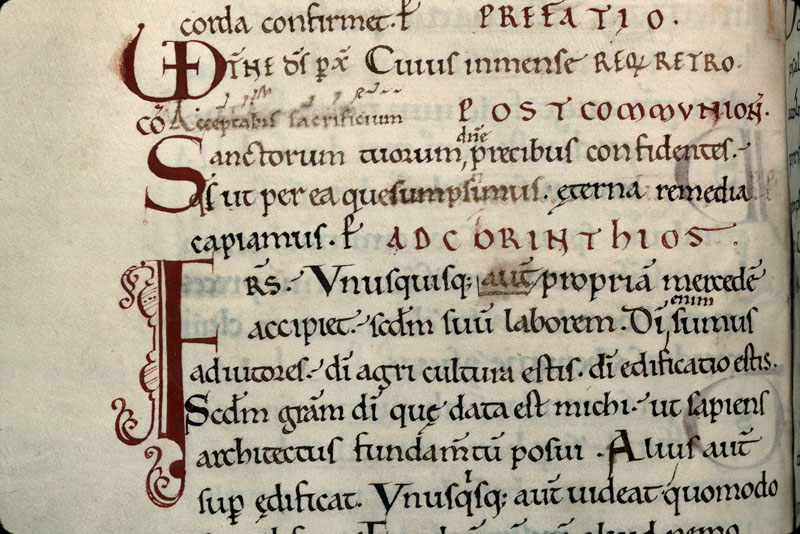 corda confirmet. P̄ PREFATIO.
OM̄NE ds̄ P̄. Cuius inmense REQ̄ RETRO.
cō Acceptabis sacrificium POSTCOMMVNION̄.
Sanctorum tuorum dn̄e precibus confidentes.
qs̄ ut per ea que sumpsimus. ęterna remedia
capiamus. P̄ AD CORINTHIOS.
FRS̄. Vnusquisq; aut̄ propriā mercedē
accipiet. scdm̄ suū laborem. Dī enim sumus
adiutores. dī agri cultura estis. dī edificatio estis.
Scdm̄ grām dī quę data est michi. ut sapiens
architectus fundam̄tū posui. Alius aut̄
sup̄ ędificat. Vnusqisq; aut̄ uideat quomodo